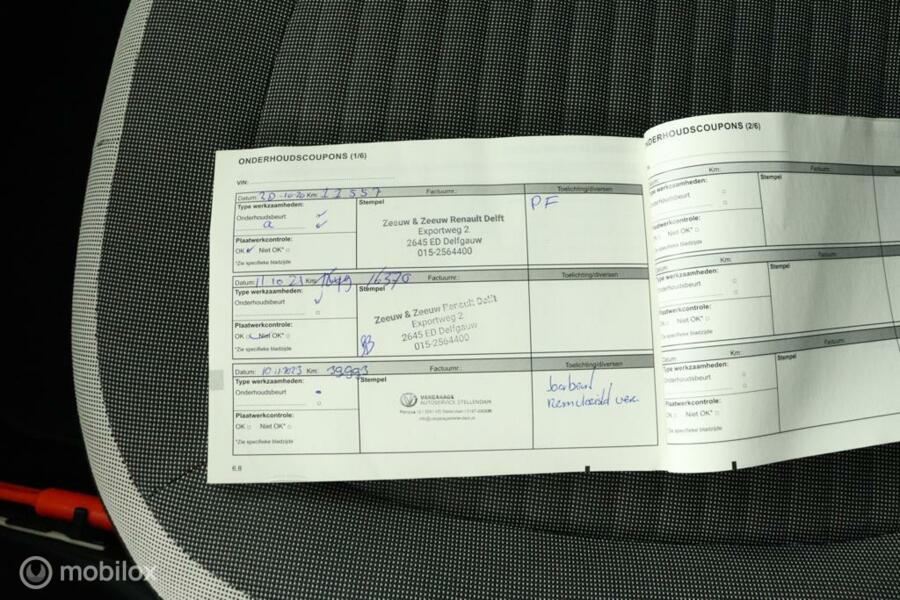 ONDERHOUDSCOUPONS (1/6)
VIN:
Datum: 20-10-20 Km: 11557 Factuurnr.: Toelichting/diversen
Type werkzaamheden: Stempel PF
Onderhoudsbeurt
a
Zeeuw & Zeeuw Renault Delft
Exportweg 2
2645 ED Delfgauw
015-2564400
Plaatwerkcontrole:
OK Niet OK*
*Zie specifieke bladzijde
Datum: 11 10 21 Km: 16370 Factuurnr.: Toelichting/diversen
Type werkzaamheden: Stempel
Onderhoudsbeurt
Zeeuw & Zeeuw Renault Delft
Exportweg 2
2645 ED Delfgauw
015-2564400
Plaatwerkcontrole:
OK Niet OK*
*Zie specifieke bladzijde
Datum: 10.11.2023 Km: 39993 Factuurnr.: Toelichting/diversen
Type werkzaamheden: Stempel
Onderhoudsbeurt
AUTOSERVICE STELLENDAM
Remvloeistof ver.
Plaatwerkcontrole:
OK Niet OK*
*Zie specifieke bladzijde
6.8
ONDERHOUDSCOUPONS (2/6)
Datum: Km: Factuurnr.:
Type werkzaamheden: Stempel
Onderhoudsbeurt
Plaatwerkcontrole:
OK Niet OK*
*Zie specifieke bladzijde
Datum: Km: Factuurnr.:
Type werkzaamheden: Stempel
Onderhoudsbeurt
Plaatwerkcontrole:
OK Niet OK*
*Zie specifieke bladzijde
Datum: Km: Factuurnr.:
Type werkzaamheden: Stempel
Onderhoudsbeurt
Plaatwerkcontrole:
OK Niet OK*
*Zie specifieke bladzijde
mobilox